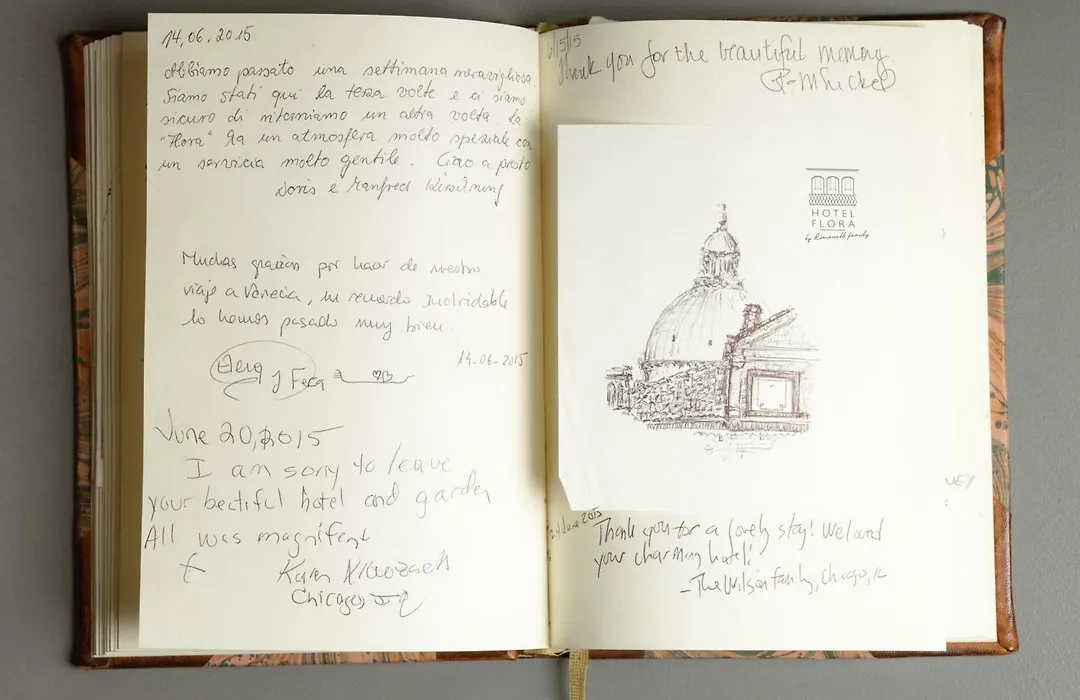 14.06.2015
Abbiamo passato una settimana meravigliosa.
Siamo stati qui la terza volte e ci siamo
sicuro di ritorniamo un altra volta. La
"Flora" ha un atmosfera molto speziale con
un servicia molto gentile. Ciao a presto
Doris e Manfred
Muchas gracias por hacer de nuestro
viaje a Venecia, un recuerdo inolvidable
lo hemos pasado muy bien.
14-06-2015
y
June 20, 2015
I am sorry to leave
your beetiful hotel and garden
All was magnifent
Karen
Chicago, IL
6/15/15
Thank you for the beautiful memory
HOTEL
FLORA
by Romanelli family
24 June 2015
Thank you for a lovely stay! We loved
your charming hotel!
- The Wilson family, Chicago, IL